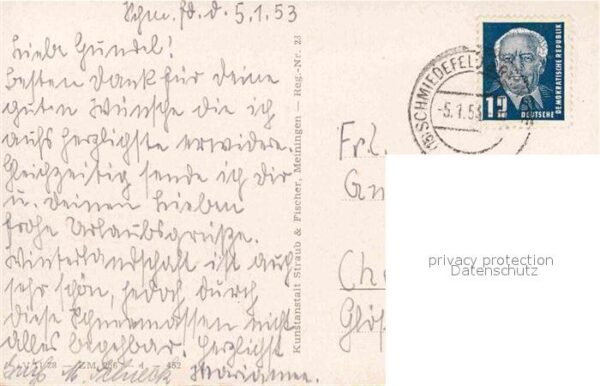 Schm. Fd. d. 5.1.53
Liebe Gundel!
Besten Dank für Deine
guten Wünsche die ich
aufs herzlichste erwidere.
Gleichzeitig sende ich Dir
u. Deinen Lieben
frohe Urlaubsgrüße.
Winterlandschaft ist auch
sehr schön, jedoch durch
diese Schneemassen nicht
alles begehbar. Herzlichst
Marianne.
Kunstanstalt Straub & Fischer, Meiningen — Reg.-Nr. 23
SCHMIEDEFELD
-5.1.53
12
DEUTSCHE
DEMOKRATISCHE REPUBLIK
Frl.
privacy protection
Datenschutz